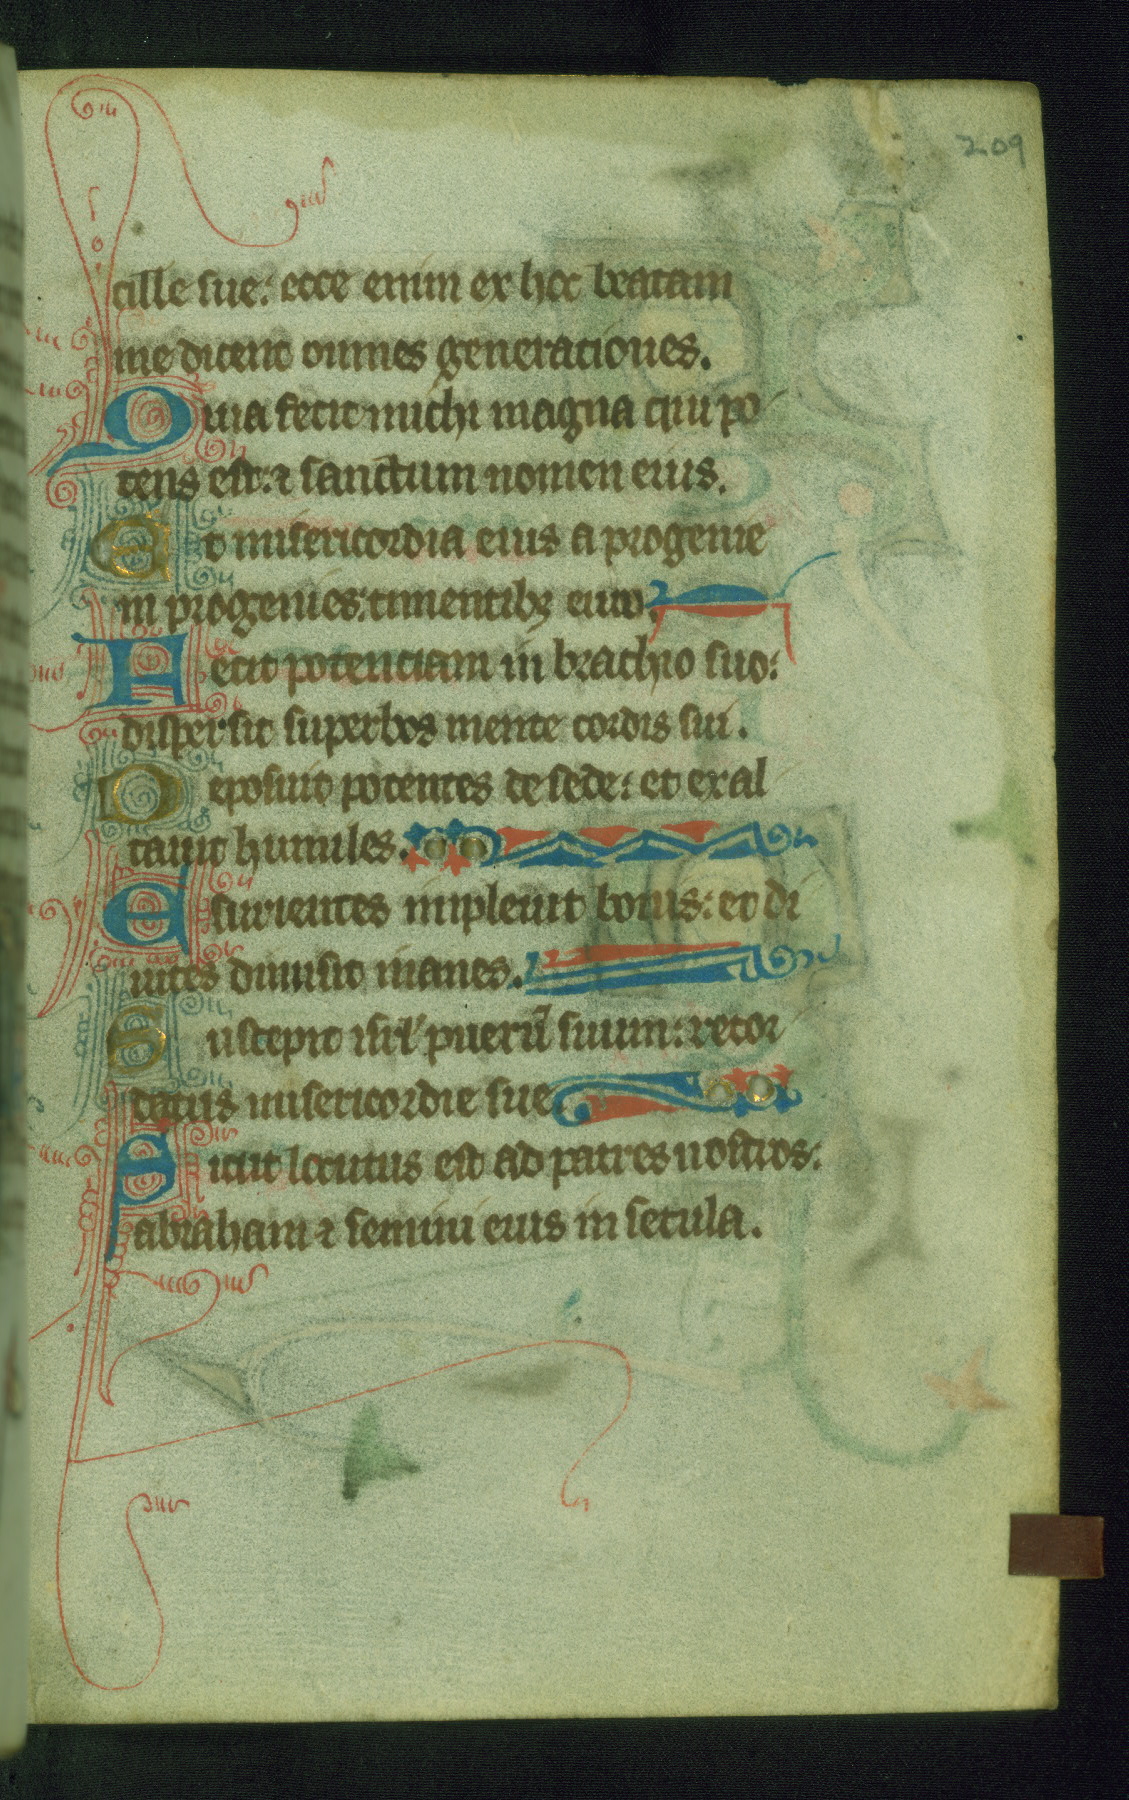 209
cille sue: ecce enim ex hoc beatam
me dicent omnes generaciones.
Quia fecit michi magna qui po
tens est: ⁊ sanctum nomen eius.
Et misericordia eius a progenie
in progenies: timentibꝫ eum.
Fecit potenciam in brachio suo:
dispersit superbos mente cordis sui.
Deposuit potentes de sede: et exal
tauit humiles.
Esurientes impleuit bonis: et di
uites dimisit inanes.
Suscepit isrl' puerū suum: recor
datus misericordie sue.
Sicut locutus est ad patres nostros:
abraham ⁊ semini eius in secula.